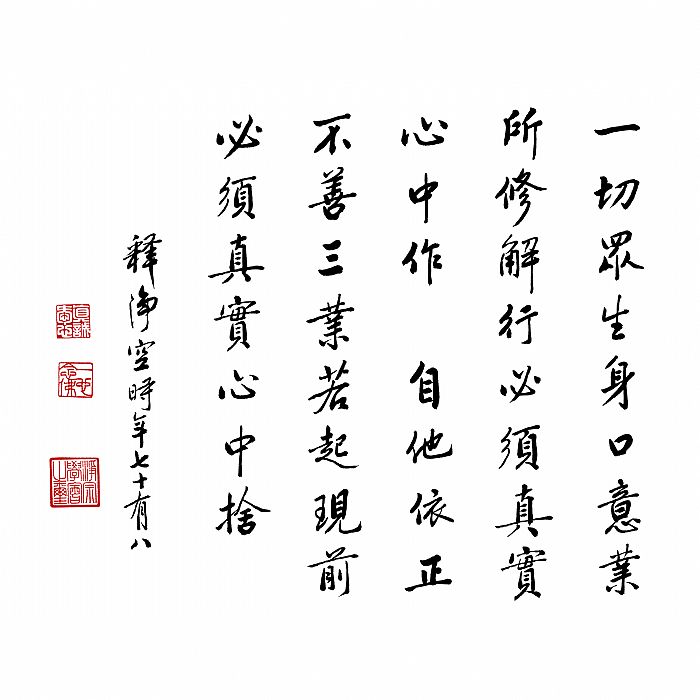 一切眾生身口意業
所修解行必須真實
心中作　自他依正
不善三業若起現前
必須真實心中捨
释淨空時年七十有八